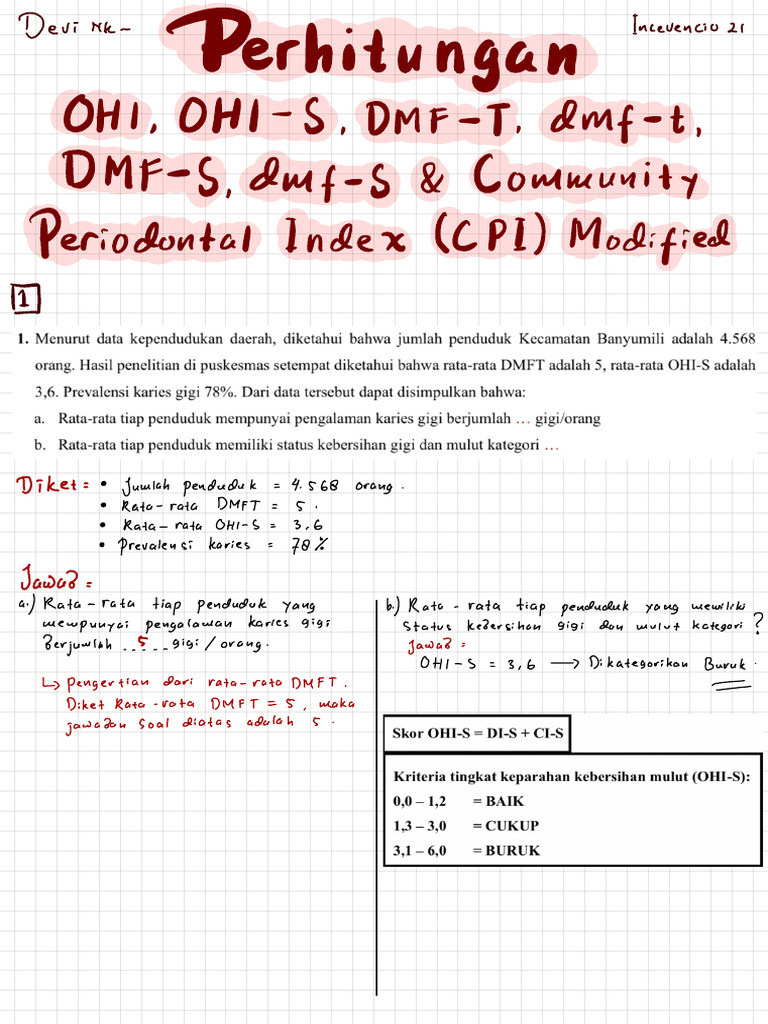 Devi Nk-
Incevencio 21
Perhitungan
OHI, OHI-S, DMF-T, dmf-t,
DMF-S, dmf-S & Community
Periodontal Index (CPI) Modified
1
1. Menurut data kependudukan daerah, diketahui bahwa jumlah penduduk Kecamatan Banyumili adalah 4.568
orang. Hasil penelitian di puskesmas setempat diketahui bahwa rata-rata DMFT adalah 5, rata-rata OHI-S adalah
3,6. Prevalensi karies gigi 78%. Dari data tersebut dapat disimpulkan bahwa:
a. Rata-rata tiap penduduk mempunyai pengalaman karies gigi berjumlah … gigi/orang
b. Rata-rata tiap penduduk memiliki status kebersihan gigi dan mulut kategori …
Diket = • Jumlah penduduk = 4.568 orang.
• Rata-rata DMFT = 5.
• Rata-rata OHI-S = 3,6
• Prevalensi karies = 78%
Jawab =
a.) Rata-rata tiap penduduk yang
mempunyai pengalaman karies gigi
Berjumlah ..5.... gigi/orang.
↳ Pengertian dari rata-rata DMFT.
Diket Rata-rata DMFT = 5, maka
jawaban soal diatas adalah 5.
b.) Rata-rata tiap penduduk yang memiliki
status kebersihan gigi dan mulut kategori?
Jawab =
OHI-S = 3,6 → Dikategorikan Buruk.
Skor OHI-S = DI-S + CI-S
Kriteria tingkat keparahan kebersihan mulut (OHI-S):
0,0 – 1,2 = BAIK
1,3 – 3,0 = CUKUP
3,1 – 6,0 = BURUK